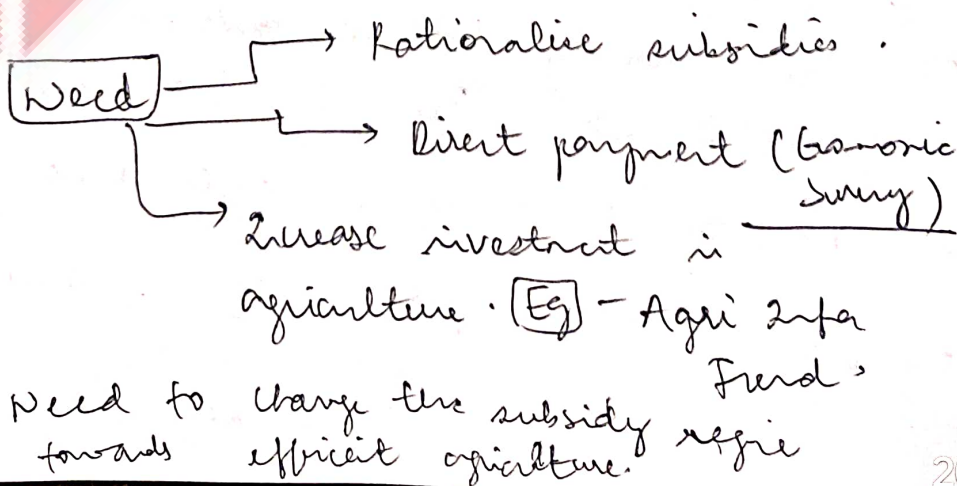 Need
Rationalise subsidies.
Direct payment (Economic
Survey)
Increase investment in
agriculture. Eg - Agri Infra
Fund.
Need to change the subsidy regime
towards efficient agriculture.
2